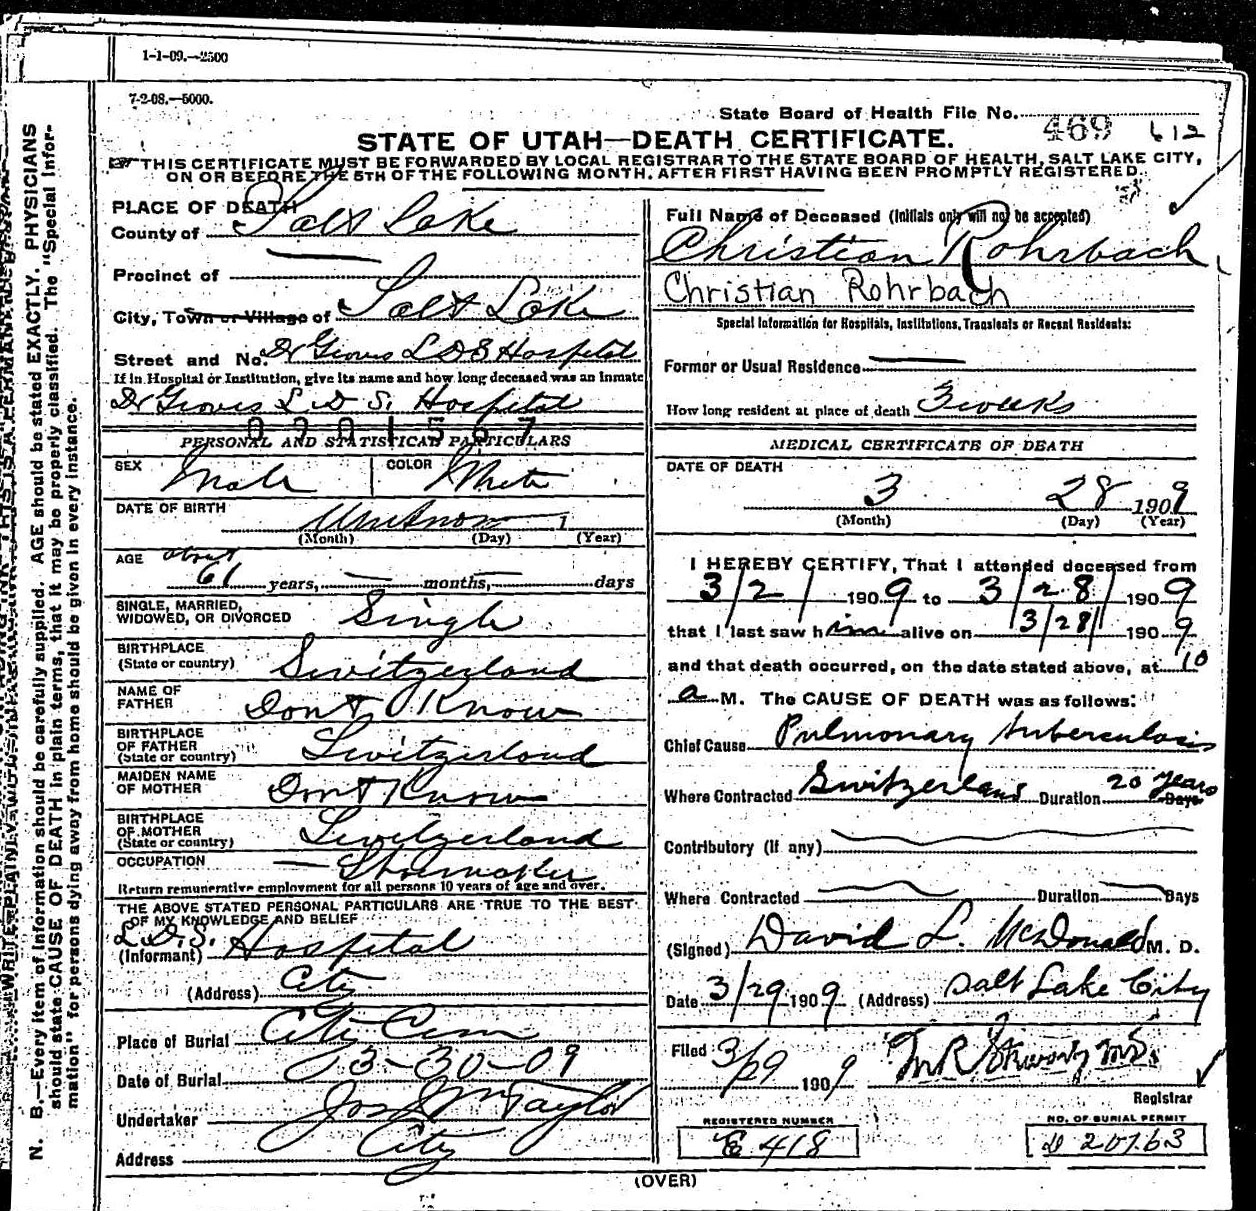 1-1-09.—2500
7-2-08.—5000.
State Board of Health File No. 469 612
STATE OF UTAH—DEATH CERTIFICATE.
THIS CERTIFICATE MUST BE FORWARDED BY LOCAL REGISTRAR TO THE STATE BOARD OF HEALTH, SALT LAKE CITY,
ON OR BEFORE THE 5TH OF THE FOLLOWING MONTH. AFTER FIRST HAVING BEEN PROMPTLY REGISTERED.
PLACE OF DEATH
County of Salt Lake
Precinct of
City, Town or Village of Salt Lake
Street and No. Dr Groves L D S Hospital
If in Hospital or Institution, give its name and how long deceased was an inmate
Dr Groves L. D. S. Hospital
PERSONAL AND STATISTICAL PARTICULARS
SEX Male COLOR White
DATE OF BIRTH Unknown 1
(Month) (Day) (Year)
AGE about 61 years, — months, — days
SINGLE, MARRIED,
WIDOWED, OR DIVORCED Single
BIRTHPLACE
(State or country) Switzerland
NAME OF
FATHER Don't Know
BIRTHPLACE
OF FATHER
(State or country) Switzerland
MAIDEN NAME
OF MOTHER Don't Know
BIRTHPLACE
OF MOTHER
(State or country) Switzerland
OCCUPATION — Shoemaker
Return remunerative employment for all persons 10 years of age and over.
THE ABOVE STATED PERSONAL PARTICULARS ARE TRUE TO THE BEST
OF MY KNOWLEDGE AND BELIEF
(Informant) L.D.S. Hospital
(Address) City
Place of Burial City Cem
Date of Burial 3-30-09
Undertaker Jos Wm Taylor
Address City
Full Name of Deceased (Initials only will not be accepted)
Christian Rohrbach
Christian Rohrbach
Special Information for Hospitals, Institutions, Transients or Recent Residents:
Former or Usual Residence
How long resident at place of death 3 weeks
MEDICAL CERTIFICATE OF DEATH
DATE OF DEATH
3 28 1909
(Month) (Day) (Year)
I HEREBY CERTIFY, That I attended deceased from
3/2/ 1909 to 3/28/ 1909
that I last saw him alive on 3/28/ 1909
and that death occurred, on the date stated above, at 10
a M. The CAUSE OF DEATH was as follows:
Chief Cause Pulmonary tuberculosis
Where Contracted Switzerland Duration 20 years Days
Contributory (If any)
Where Contracted Duration Days
(Signed) David L. McDonald M. D.
Date 3/29 1909 (Address) Salt Lake City
Filed 3/29 1909
Registrar
REGISTERED NUMBER
E 418
NO. OF BURIAL PERMIT
D 20763
(OVER)
N. B.—Every item of information should be carefully supplied. AGE should be stated EXACTLY. PHYSICIANS
should state CAUSE OF DEATH in plain terms, that it may be properly classified. The "Special Infor-
mation" for persons dying away from home should be given in every instance.